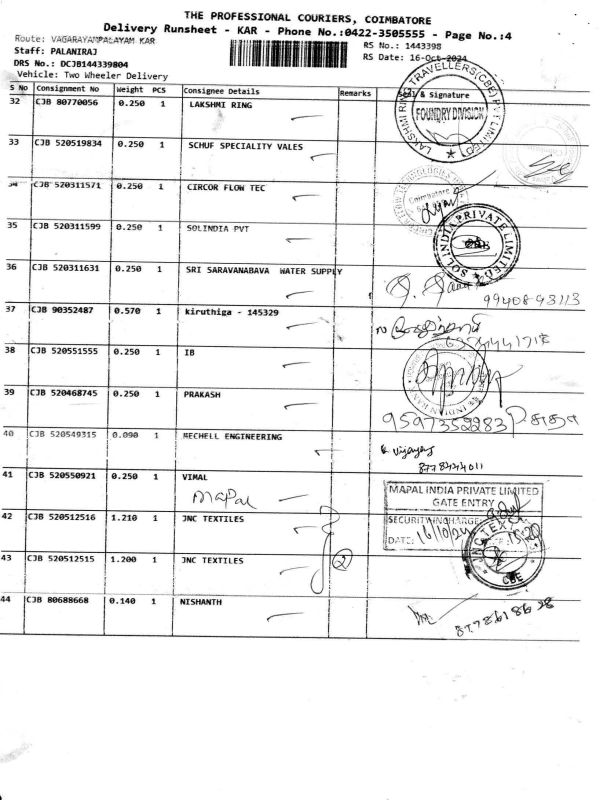 THE PROFESSIONAL COURIERS, COIMBATORE
Delivery Runsheet - KAR - Phone No.:0422-3505555 - Page No.:4
Route: VAGARAYAMPALAYAM KAR
RS No.: 1443398
Staff: PALANIRAJ
RS Date: 16-Oct-2024
DRS No.: DCJB144339804
Vehicle: Two Wheeler Delivery
S No Consignment No Weight PCS Consignee Details Remarks Seal & Signature
32 CJB 80770056 0.250 1 LAKSHMI RING
LAKSHMI RING TRAVELLERS(CBE) PVT LIMITED
FOUNDRY DIVISION
33 CJB 520519834 0.250 1 SCHUF SPECIALITY VALES
34 CJB 520311571 0.250 1 CIRCOR FLOW TEC
Coimbatore
35 CJB 520311599 0.250 1 SOLINDIA PVT
SOLINDIA PRIVATE LIMITED
36 CJB 520311631 0.250 1 SRI SARAVANABAVA WATER SUPPLY
9940893113
37 CJB 90352487 0.570 1 kiruthiga - 145329
38 CJB 520551555 0.250 1 IB
39 CJB 520468745 0.250 1 PRAKASH
9597352283
40 CJB 520549315 0.090 1 MECHELL ENGINEERING
41 CJB 520550921 0.250 1 VIMAL
mapal
MAPAL INDIA PRIVATE LIMITED
GATE ENTRY
SECURITY INCHARGE
DATE: 16/10/24
15:20
42 CJB 520512516 1.210 1 JNC TEXTILES
43 CJB 520512515 1.200 1 JNC TEXTILES
2
JNC TEX
CBE
44 CJB 80688668 0.140 1 NISHANTH